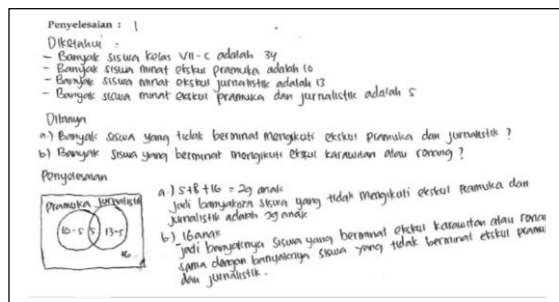 Penyelesaian : 1
Diketahui :
- Banyak siswa kelas VII-C adalah 34
- Banyak siswa minat ekskul pramuka adalah 10
- Banyak siswa minat ekskul jurnalistik adalah 13
- Banyak siswa minat ekskul pramuka dan jurnalistik adalah 5
Ditanya
a.) Banyak siswa yang tidak berminat mengikuti ekskul pramuka dan jurnalistik ?
b) Banyak siswa yang berminat mengikuti ekskul karawitan atau renang ?
Penyelesaian
Pramuka Jurnalistik
10-5 5 13-5
16
a.) 5+8+16 = 29 anak
jadi banyaknya siswa yang tidak mengikuti ekskul pramuka dan
jurnalistik adalah 29 anak
b.) 16 anak
jadi banyaknya siswa yang berminat ekskul karawitan atau renang
sama dengan banyaknya siswa yang tidak berminat ekskul pramu
dan jurnalistik.